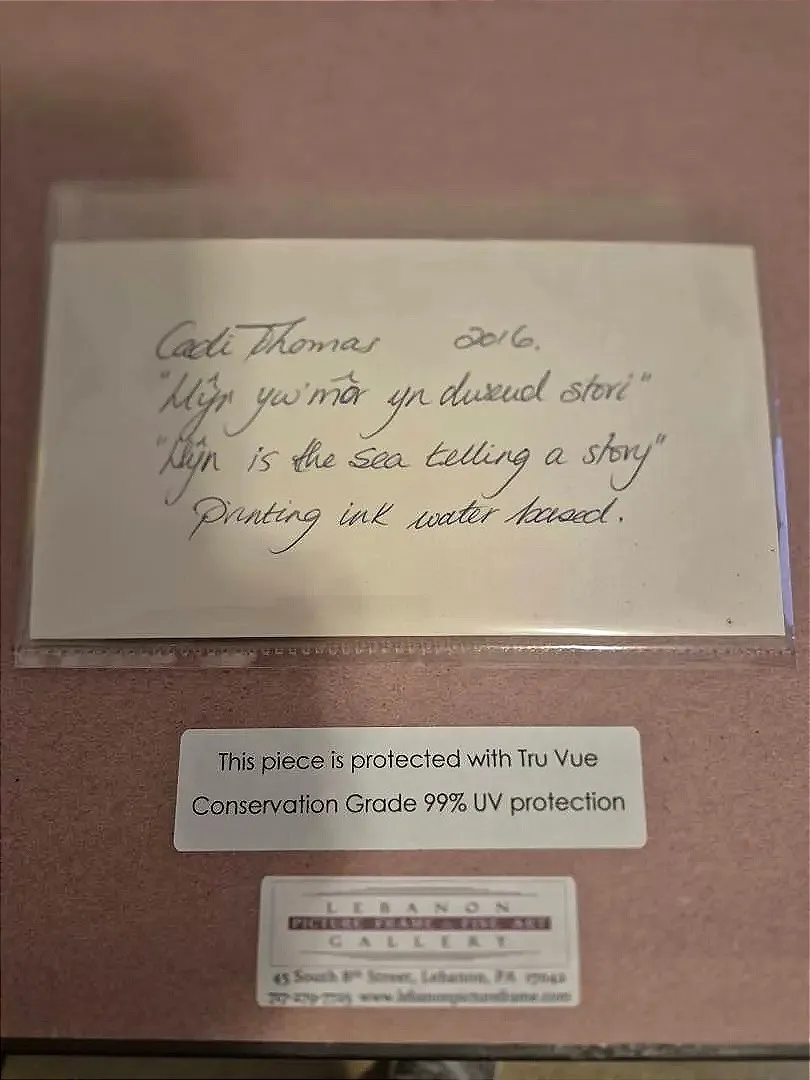 Cadi Thomas 2016.
"Llŷn yw'r môr yn dweud stori"
"Llŷn is the sea telling a story"
Printing ink water based.
This piece is protected with Tru Vue
Conservation Grade 99% UV protection
LEBANON
PICTURE FRAME & FINE ART
GALLERY
45 South 8th Street, Lebanon, PA 17042
717-279-7725 www.lebanonpictureframe.com